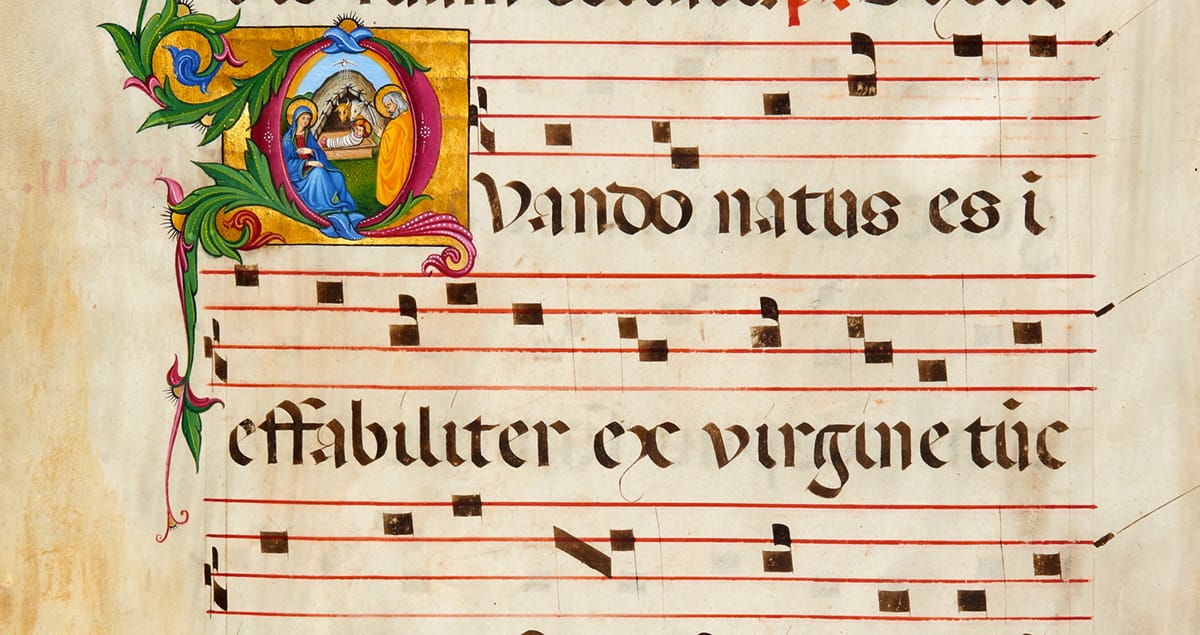 QVando natus es ī
effabiliter ex virgine tūc